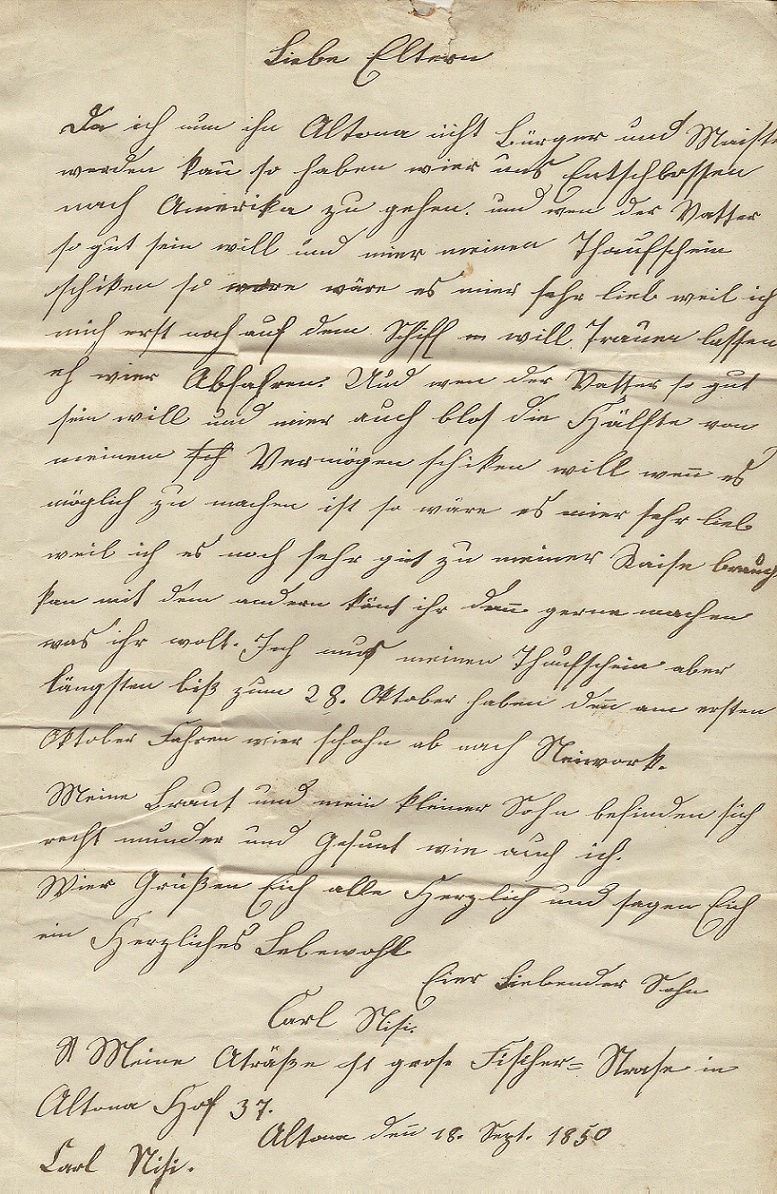 Liebe Eltern
Da ich nun ihn Altona nicht Bürger und Maiste
werden kan̄ so haben wier uns Entschlossen
nach Amerika zu gehen. und wen der Vatter
so gut sein will und mier meinen Thaufschein
schiken so ware wäre es mier sehr lieb weil ich
mich erst noch auf dem Schiff will Trauen lassen
eh wier Abfahren. Und wen der Vatter so gut
sein will und mier auch blos die Hälfte von
meinem Vermögen schiken will wen̄ es
möglich zu machen ist so wäre es mier sehr lieb
weil ich es noch sehr gut zu meiner Raise brauch
kan mit dem andern könt ihr den̄ gerne machen
was ihr wolt. Ich mus meinen Thaufschein aber
längsten biß zum 28. Oktober haben den̄ am ersten
Oktober Fahren wier schohn ab nach Neiwork.
Meine Braut und mein kleiner Sohn befinden sich
recht munder und Gesunt wie auch ich.
Wier Grüßen Eich alle Herzlich und sagen Eich
ein Herzliches Lebewohl
Eier Liebender Sohn
Carl Nisi.
Meine Aträße ist grose Fischer= Strase in
Altona Hof 37.
Altona den̄ 18. Sept. 1850
Carl Nisi.